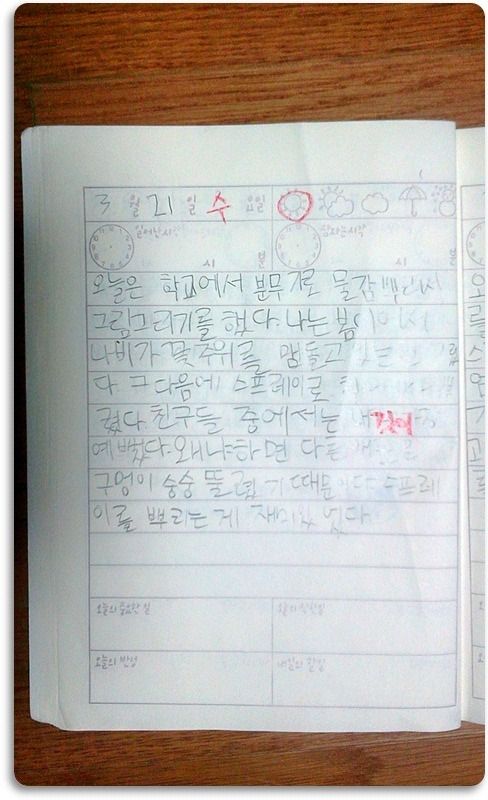 3 월 21 일 수 요일
일어난시각 잠자는시각
시 분 시 분
오늘은 학교에서 분무기로 물감 뿌려서
그림그리기를 했다. 나는 봄이어서
나비가 꽃주위를 맴돌고
다. 그 다음에 스프레이로
렸다. 친구들 중에서는 내것이
예뻤다. 왜냐하면 다른
구멍이 숭숭 뚤렸기때문이다. 스프레
이를 뿌리는게 재미있었다.
오늘의 중요한 일 오늘의 착한일
오늘의 반성 내일의 할일